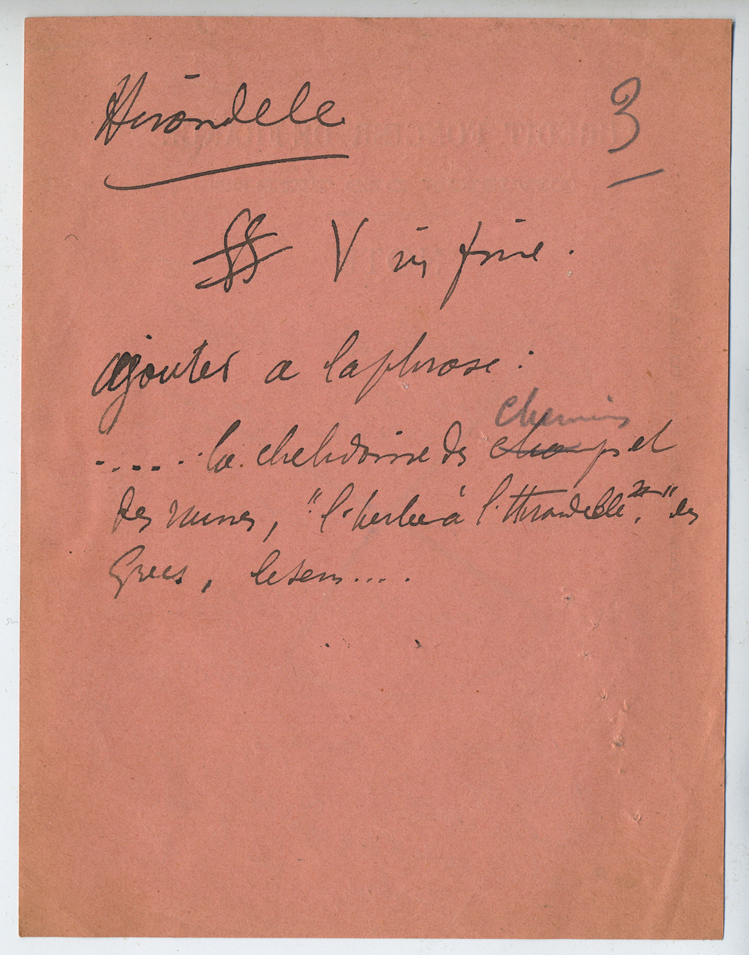 Hirondelle 3
§§ V in fine.
ajouter a la phrase :
..... la chelidoine des champs chemins et
des ruines, "l'herbe à l'Hirondelle", des
Grecs, le sem....